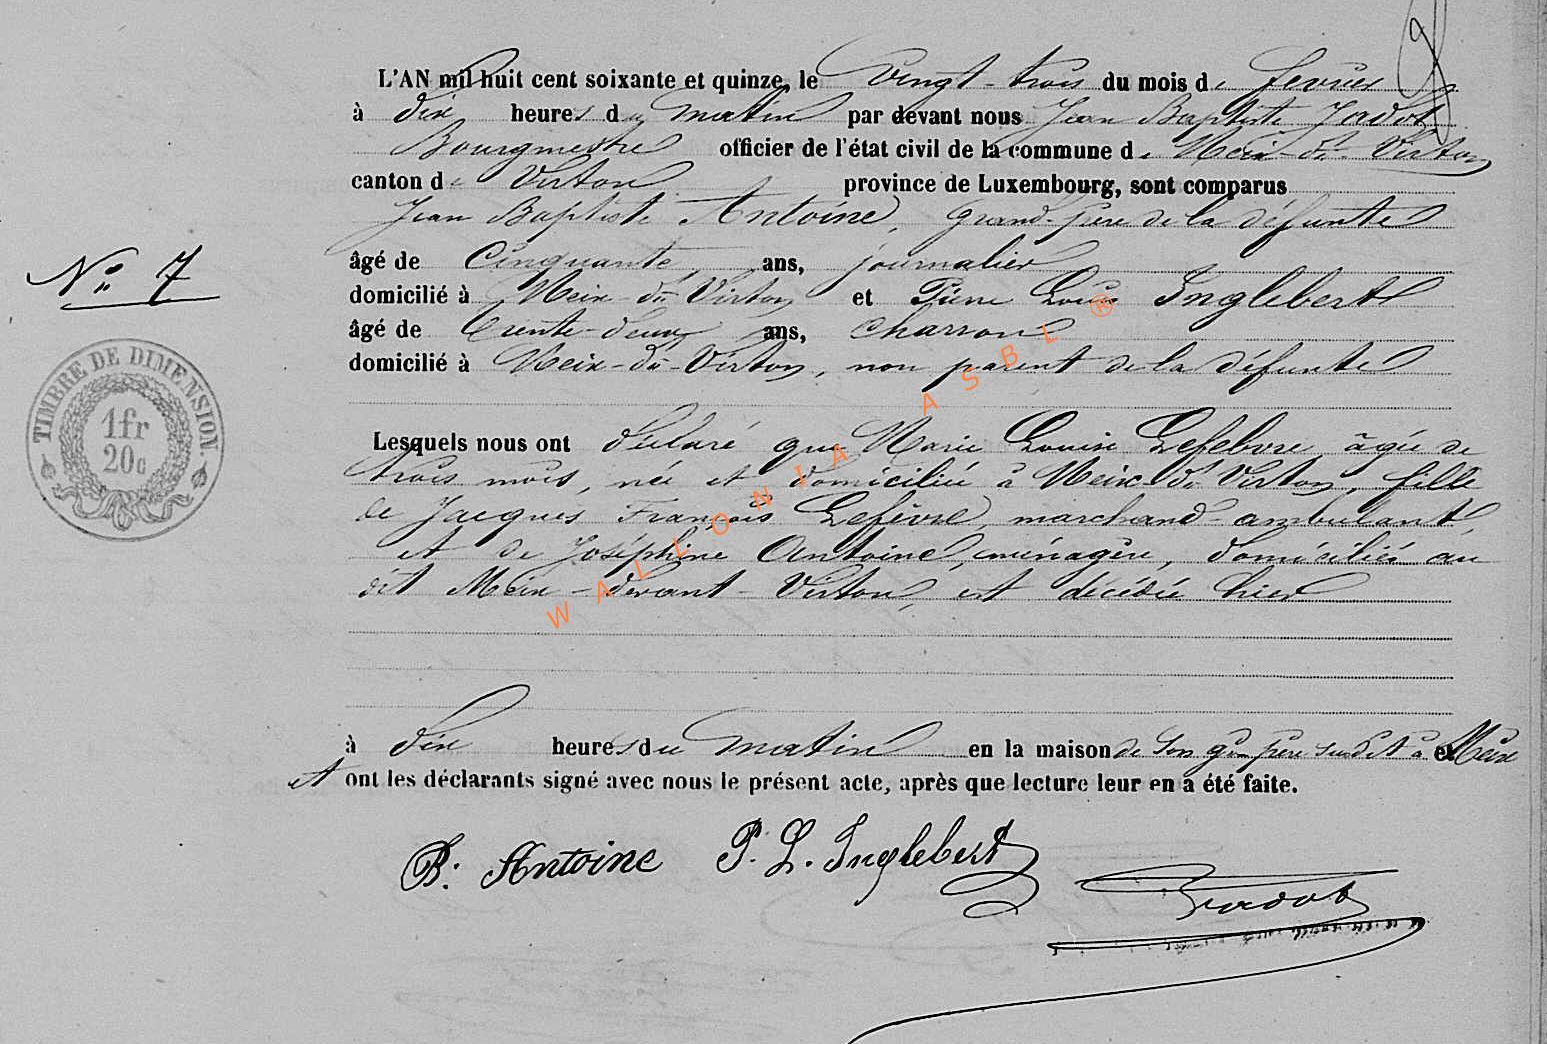 L'AN mil huit cent soixante et quinze, le vingt-trois du mois de fevrier
à dix heures du matin par devant nous Jean Baptiste Jadot
Bourgmestre officier de l'état civil de la commune de Meix-dt-Virton
canton de Virton province de Luxembourg, sont comparus
Jean Baptiste Antoine, grand-père de la défunte
âgé de Cinquante ans, journalier
N° 7
domicilié à Meix-dt-Virton et Pierre Louis Inglebert
âgé de trente-deux ans, charron
domicilié à Meix-dt-Virton, non parent de la défunte
TIMBRE DE DIMENSION.
1fr
20c
Lesquels nous ont déclaré que Marie Louise Lefebvre, âgée de
trois mois, née et domiciliée à Meix-dt-Virton, fille
de Jacques François Lefèvre, marchand-ambulant,
et de Joséphine Antoine, ménagère, domiciliés au
dit Meix-devant-Virton, est décédée hier
à dix heures du matin en la maison de son gr père susdit à Meix
et ont les déclarants signé avec nous le présent acte, après que lecture leur en a été faite.
B. Antoine P. L. Inglebert
Jadot
WALLONIA ASBL ®